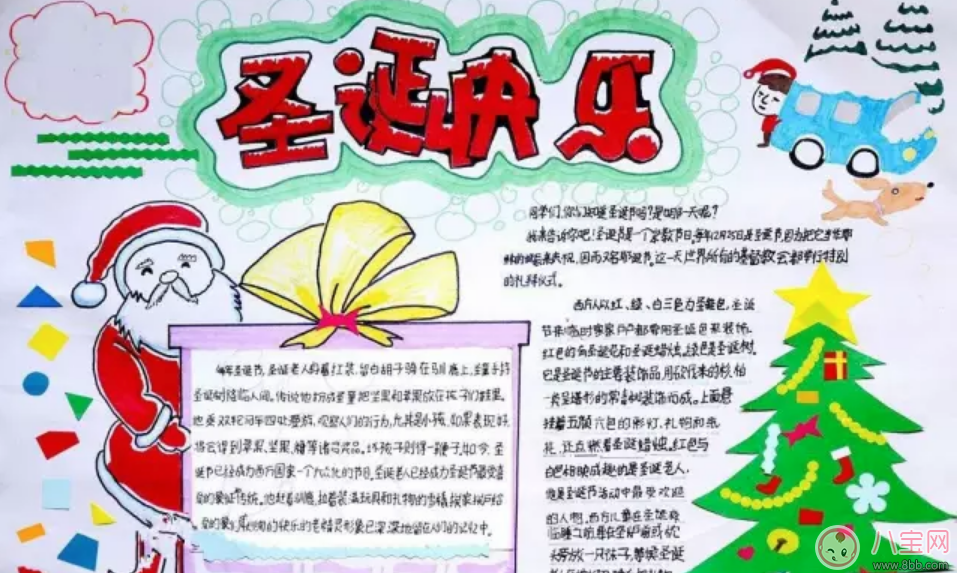 圣诞快乐
同学们,你们知道圣诞节吗?是哪一天呢?
我来告诉你吧!圣诞节是一个宗教节日,每年12月25日是圣诞节,因为把它当作耶
稣的诞辰来庆祝,因而又名耶诞节。这一天世界所有的基督教会都举行特别
的礼拜仪式。
西方人以红、绿、白三色为圣诞色,圣诞
节来临时家家户户都要用圣诞色来装饰,
红色的有圣诞花和圣诞蜡烛。绿色是圣诞树,
它是圣诞节的主要装饰品,用砍伐来的杉、柏
一类呈塔形的常青树装饰而成。上面悬
挂着五颜六色的彩灯、礼物和纸
花,还点燃着圣诞蜡烛。红色与
白色相映成趣的是圣诞老人,
他是圣诞节活动中最受欢迎
的人物。西方儿童在圣诞夜
临睡之前,要在壁炉前或枕
头旁放一只袜子,等候圣诞
每年圣诞节,圣诞老人身着红装,留白胡子骑在驯鹿上,手持
圣诞树降临人间,
也乘双轮马车四处漫游,观察人们的行为,尤其是小孩,如果表现好,
将会得到苹果、坚果、糖等诸多奖品。坏孩子则得一鞭子,如今,圣
诞节已经成为西方国家一个大众化的节日,圣诞老人已经成为圣诞节最受喜
爱的象征传统。他赶着驯鹿,拉着装满玩具和礼物的雪橇,挨家挨户给
的快乐的老精灵形象已深深地留在人们的记忆中。
八宝网
www.8bb.com